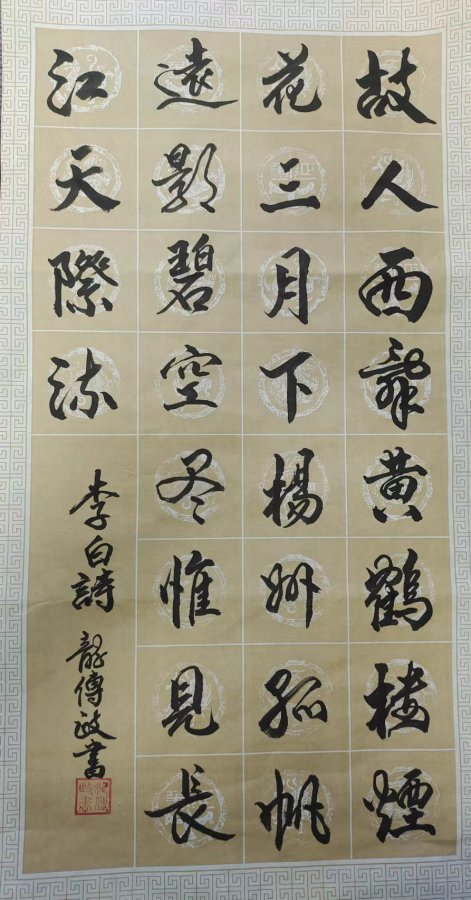 故人西辭黄鶴樓煙
花三月下楊州孤帆
遠影碧空尽惟見長
江天際流
李白詩 龍傳政書